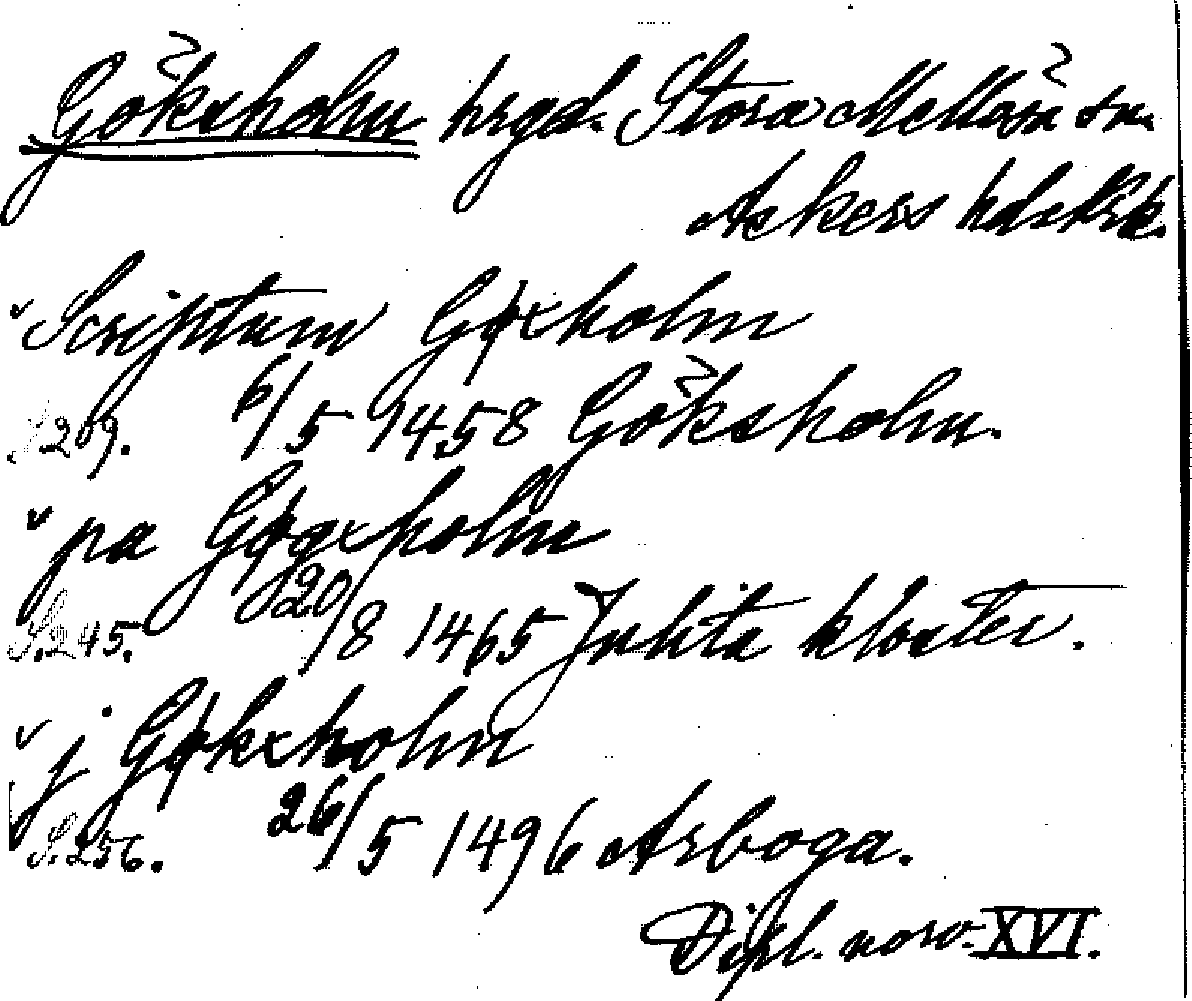 Göksholm hrgd. Stora Mellösa sn.
Askers hdsnk.
v Scriptum Gøxholm
S. 209. 6/5 1458 Göksholm.
v pa Gøgxholm
S. 245. 20/8 1465 Julita kloster.
v j Gøkxholm
S. 256. 26/5 1496 Arboga.
Dipl. norv. XVI.